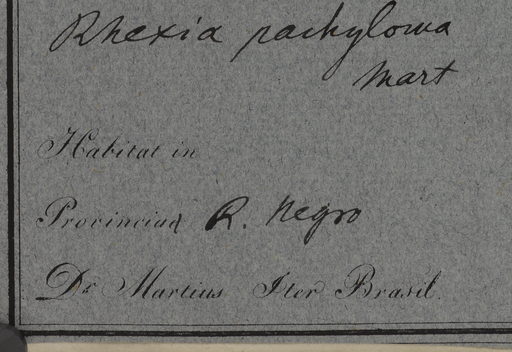 Rhexia pachyloma
Mart
Habitat in
Provincia R. Negro
Dr Martius Iter Brasil.